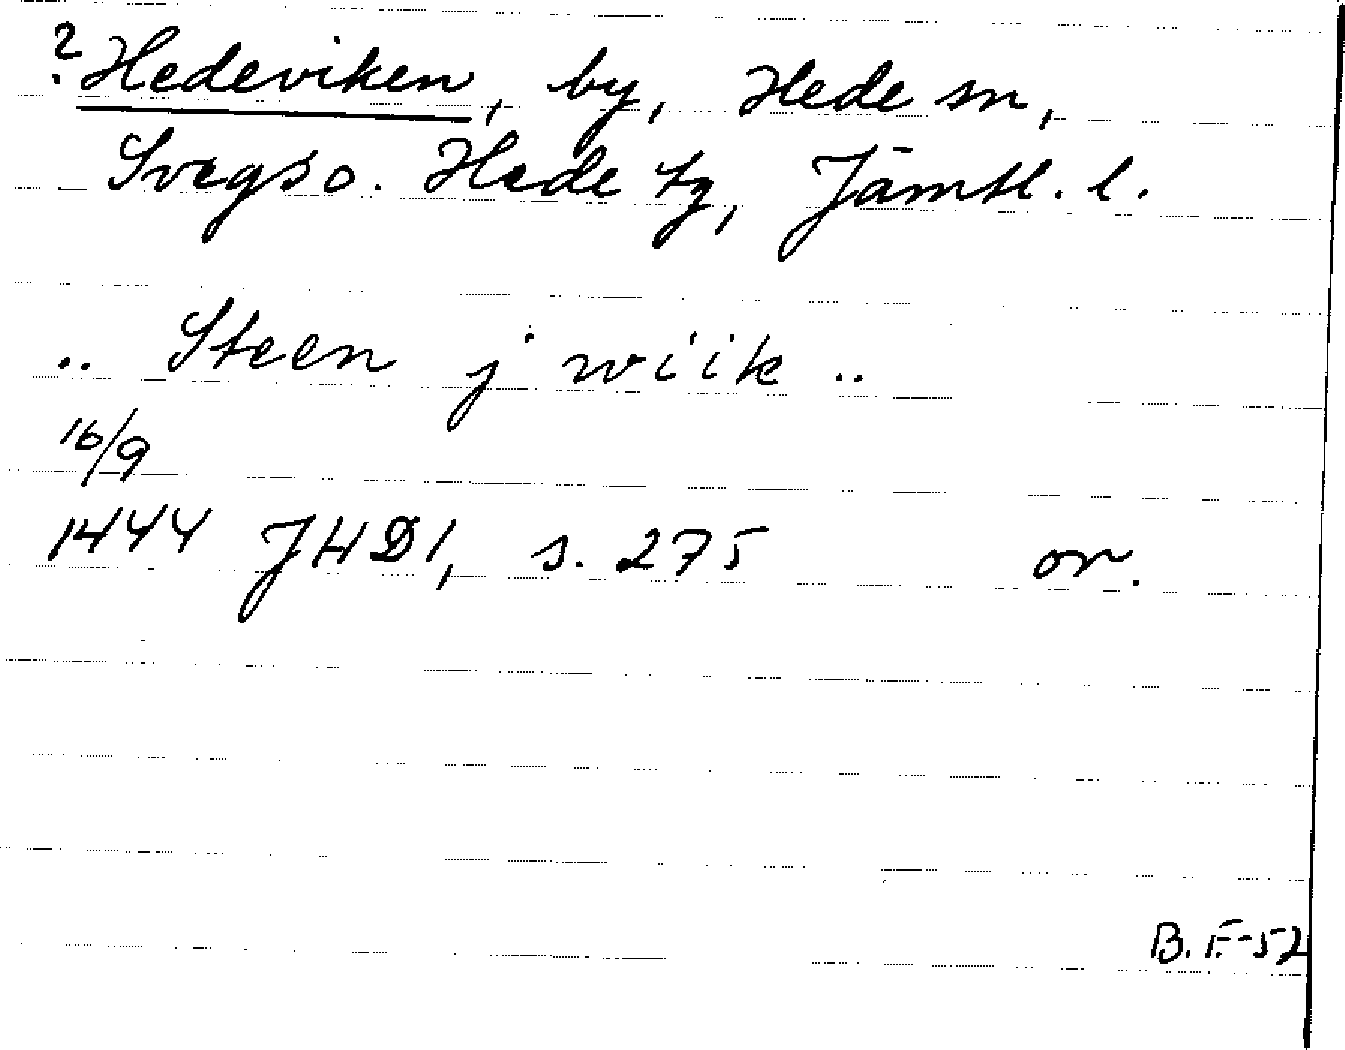 ? Hedeviken, by, Hede sn,
Svegs o. Hede tg, Jämtl. l.
.. Steen j wiik ..
16/9
1444 JHD1, s. 275 or.
B. F-52